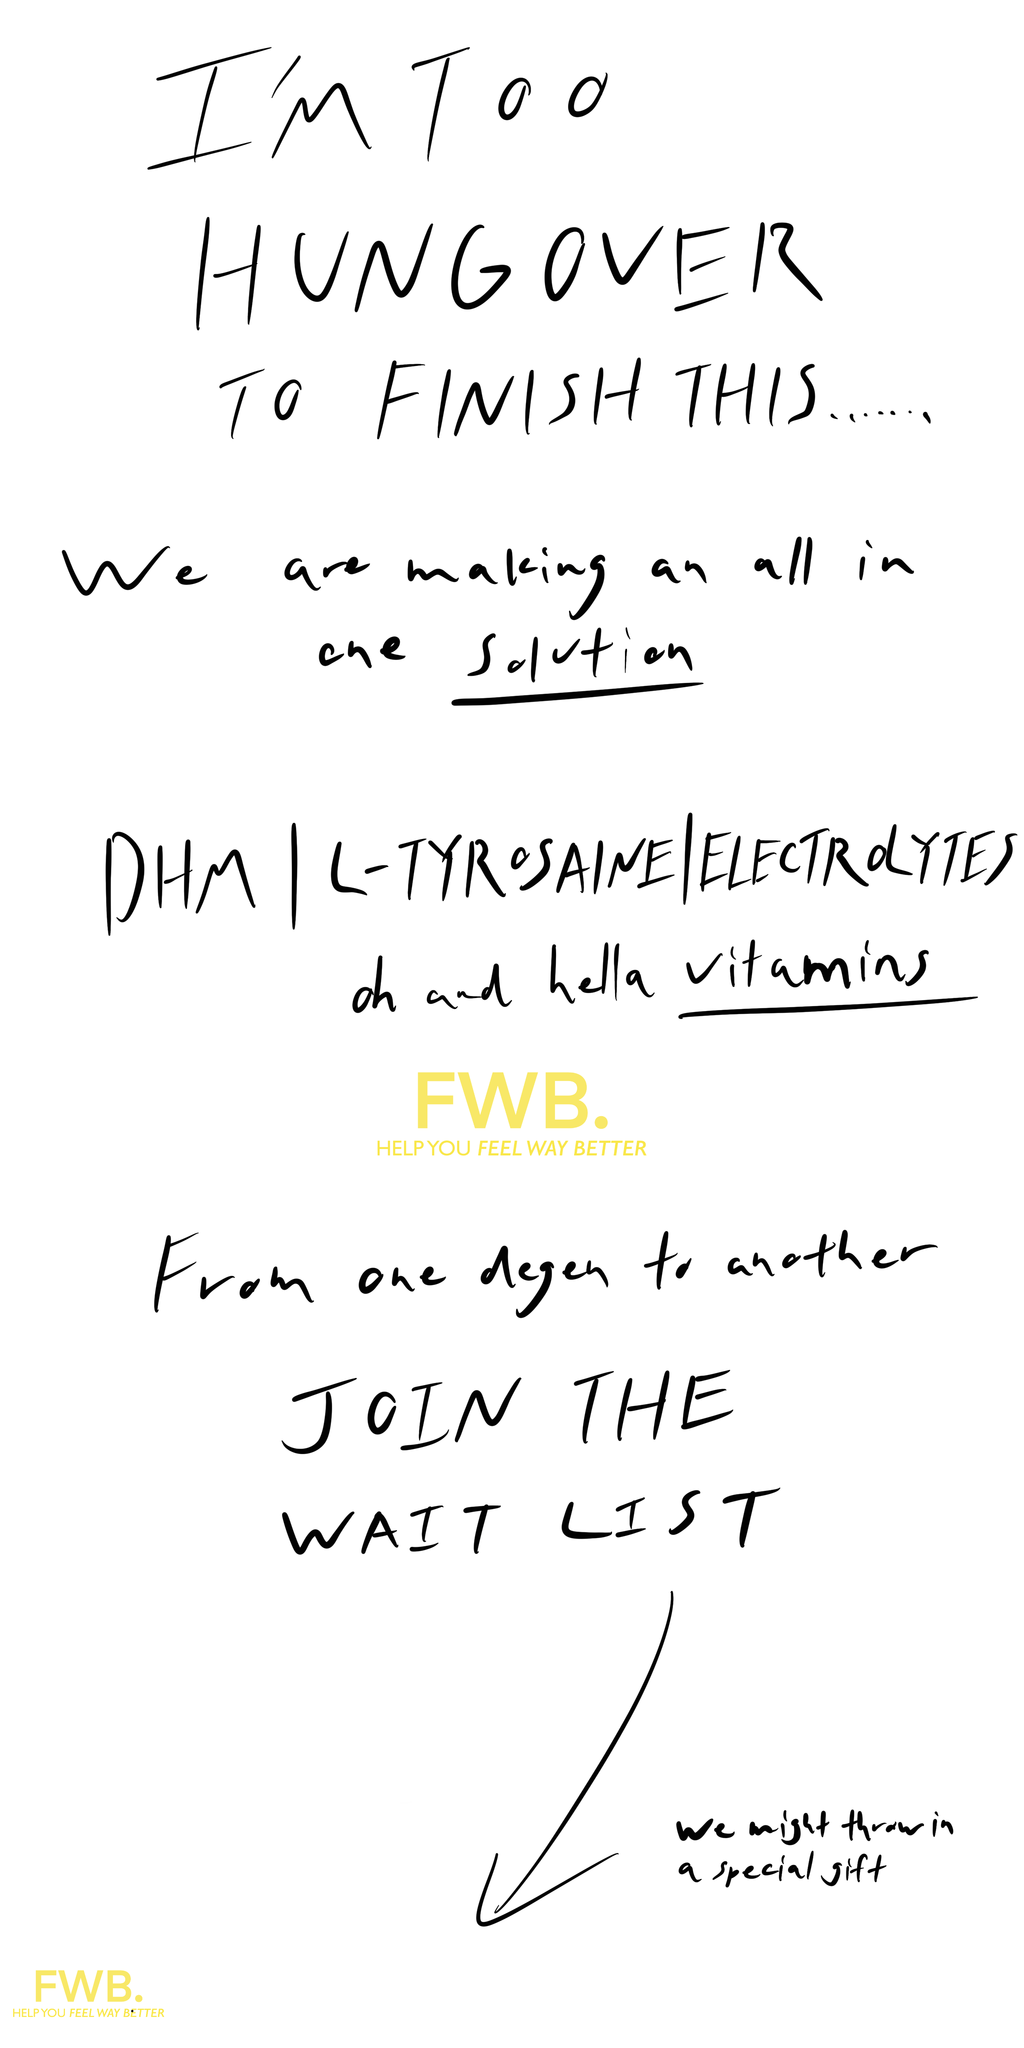 I'M TOO
HUNGOVER
TO FINISH THIS.......
We are making an all in
one solution
DHM | L-TYROSAINE | ELECTROLYTES
oh and hella vitamins
FWB.
HELP YOU FEEL WAY BETTER
From one degen to another
JOIN THE
WAIT LIST
we might throw in
a special gift
FWB.
HELP YOU FEEL WAY BETTER